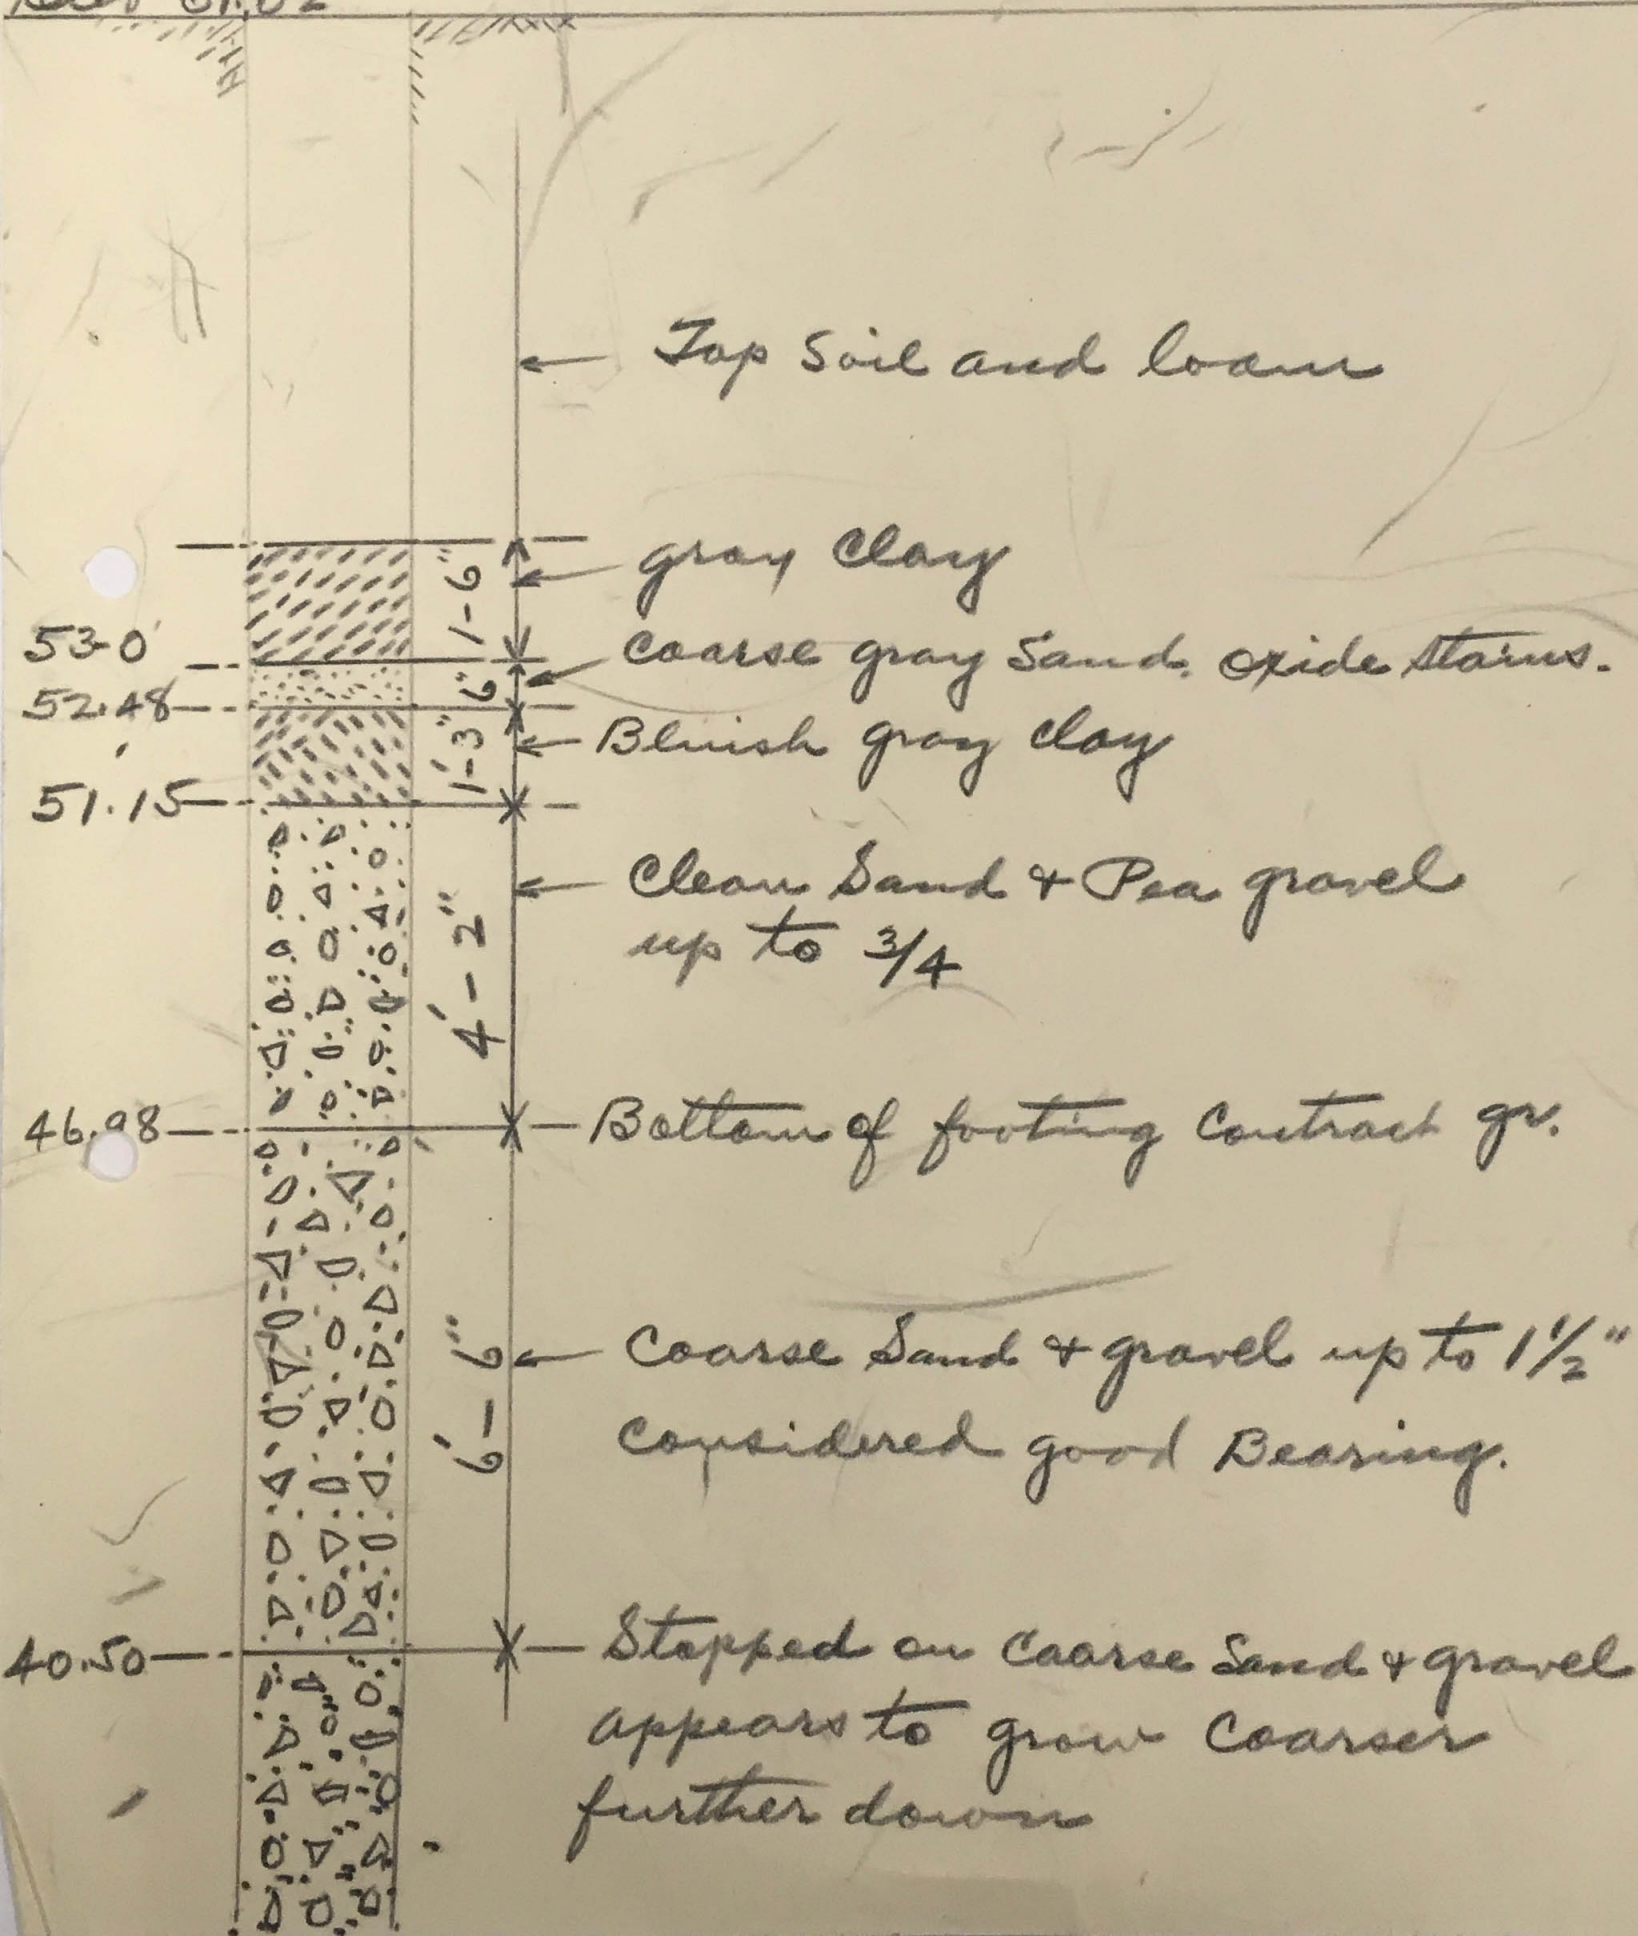 Top Soil and loam
1-6"
gray clay
53-0'
coarse gray Sand. oxide stains.
6"
52.48
Bluish gray clay
1'-3"
51.15
Clean Sand & Pea gravel
up to 3/4
4'-2"
46.98
Bottom of footing Contract gr.
Coarse Sand & gravel up to 1 1/2"
6'-6"
Considered good Bearing.
40.50
Stopped on Coarse Sand & gravel
appears to grow Coarser
further down